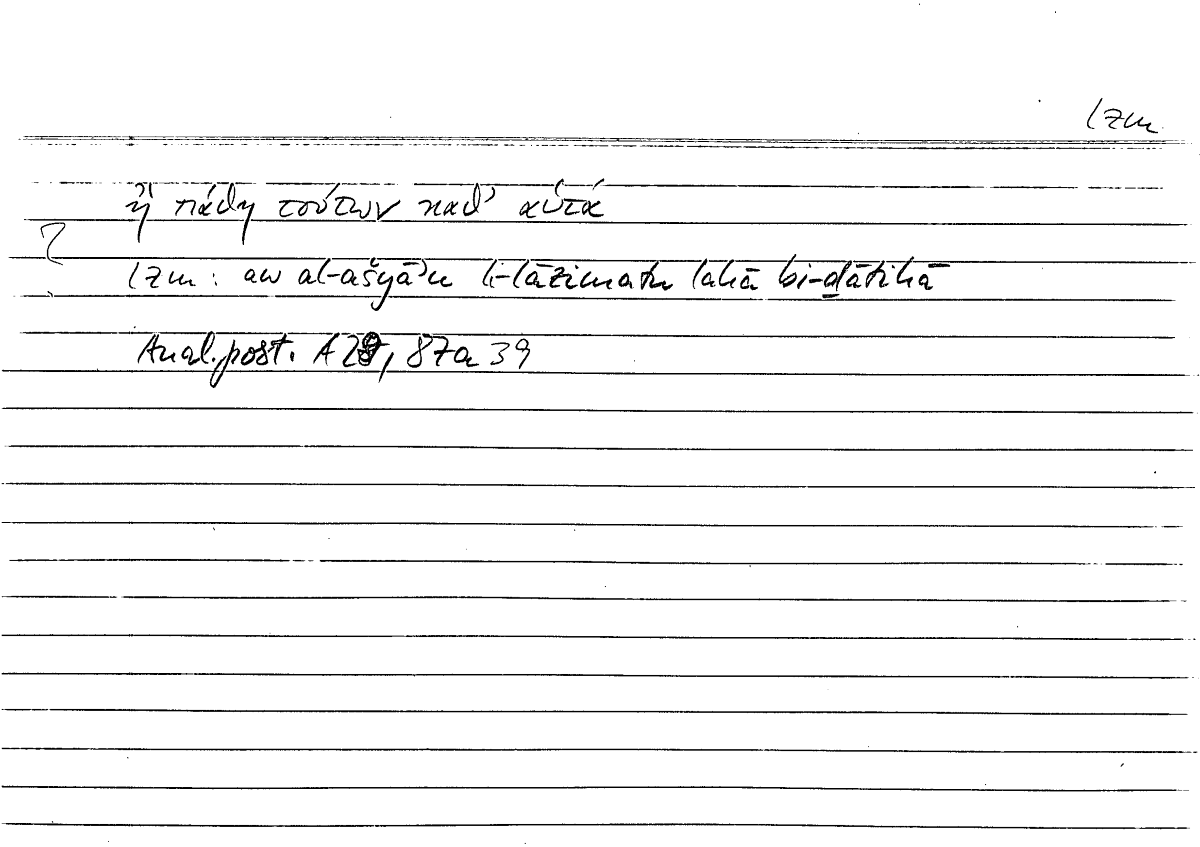 lzm
ἢ πάθη τούτων καθ' αὑτά
?
lzm : aw al-ašyāʾu l-lāzimatu lahā bi-ḏātihā
Anal. post. A 28, 87a 39